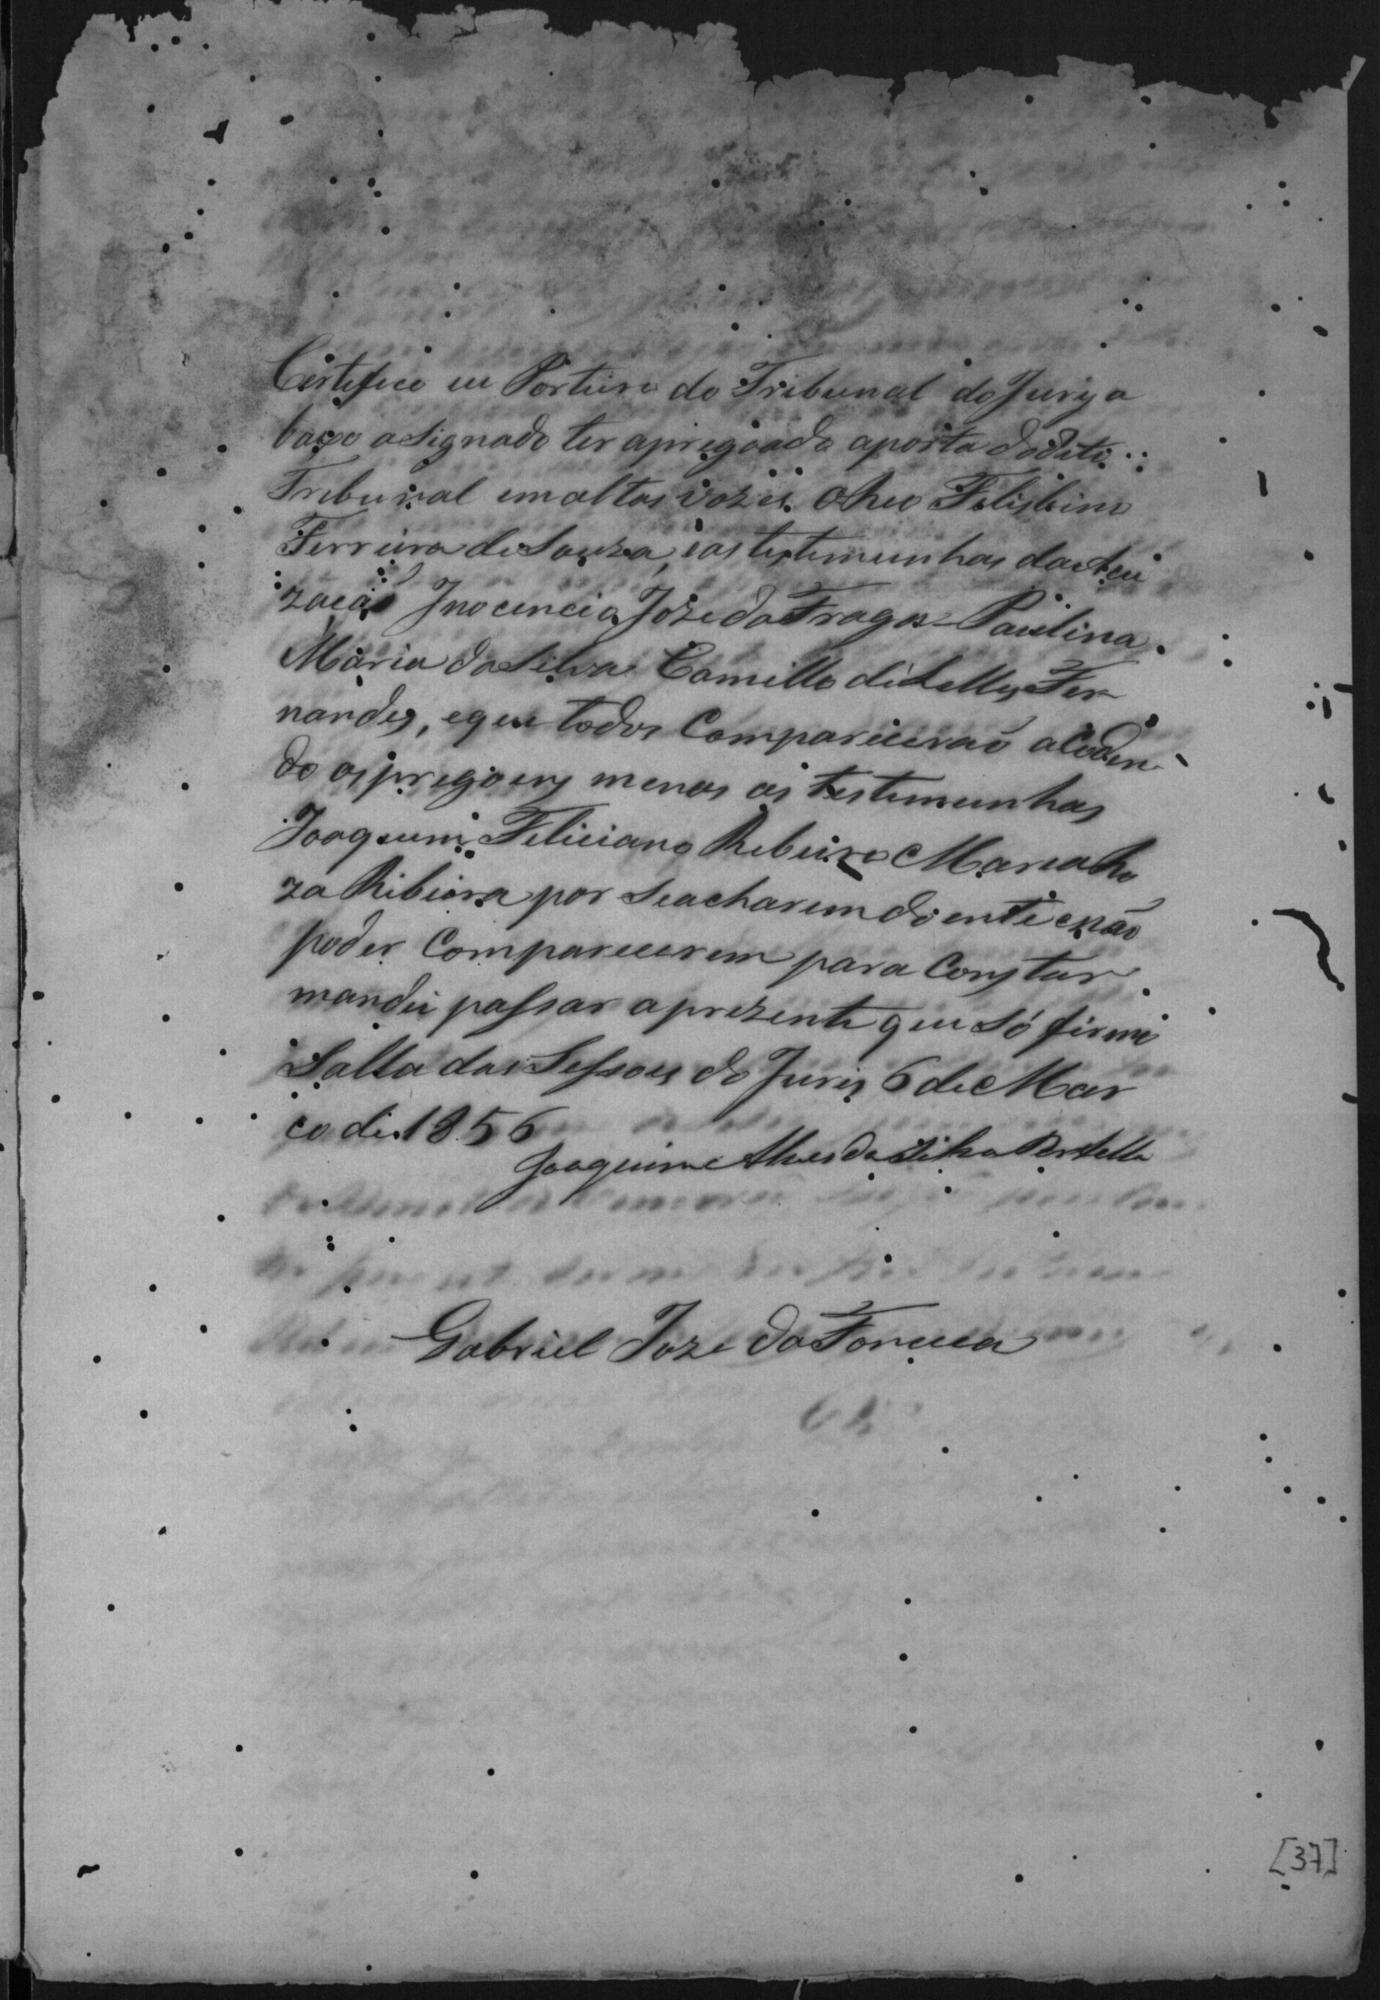 Certefico eu Porteiro do Tribunal do Jury a
baixo asignado ter apregoado aporta do dito
Tribunal em altas vozes o Reo Felisbino
Ferreira de Souza, eas testemunhas da Acu
zação Inocencio Joze da Fraga Paulina
Maria da Silva Camillo de Lellys Fer
nandes, e que todos Comparecerão acoden
do os pregoens menos as testemunhas
Joaquim Feliciano Ribeiro Maria Ro
za Ribeira por seacharem doente enão
poder Comparecerem para Constar
mandei passar aprezente que só firmo
Salla das Sessoes do Jury 6 de Mar
co de 1856
Joaquim Alves da Silva Portella
Gabriel Joze da Fonceca
[37]